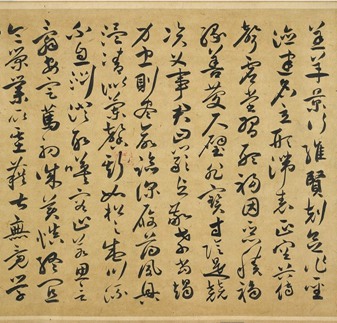 羔羊景行維賢剋念作聖
德建名立形端表正空谷傳
聲虛堂習聽禍因惡積福
緣善慶尺璧非寶寸陰是競
資父事君曰嚴與敬孝當竭
力忠則盡命臨深履薄夙興
溫凊似蘭斯馨如松之盛川流
不息淵澄取映容止若思言
辭安定篤初誠美慎終宜
令榮業所基藉甚無竟學